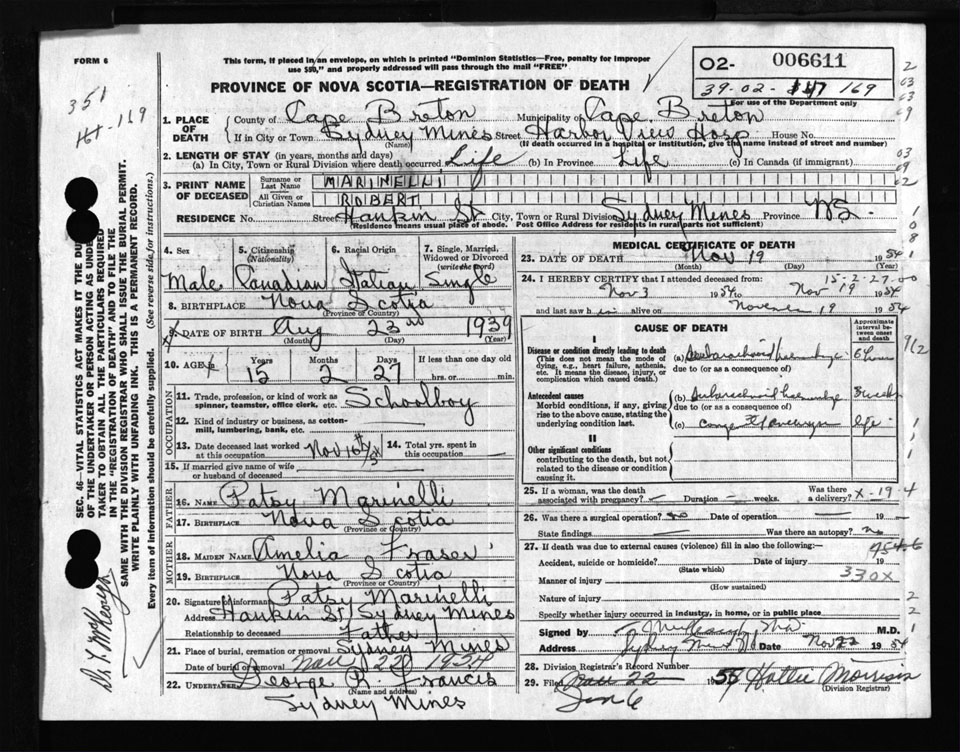 FORM 6
This form, if placed in an envelope, on which is printed "Dominion Statistics—Free, penalty for improper
use $50," and properly addressed will pass through the mail "FREE".
PROVINCE OF NOVA SCOTIA—REGISTRATION OF DEATH
02- 006611
39-02- 169
For use of the Department only
351
169
1. PLACE OF DEATH County of Cape Breton Municipality of Cape Breton
If in City or Town Sydney Mines Street Harbor View Hosp House No.
(Name) (If death occurred in a hospital or institution, give the name instead of street and number)
2. LENGTH OF STAY (in years, months and days)
(a) In City, Town or Rural Division where death occurred Life (b) In Province Life (c) In Canada (if immigrant)
3. PRINT NAME OF DECEASED Surname or Last Name MARINELLI
All Given or Christian Names ROBERT
RESIDENCE No. Street Hankin St City, Town or Rural Division Sydney Mines Province N.S.
(Residence means usual place of abode. Post Office Address for residents in rural parts not sufficient)
4. Sex 5. Citizenship (Nationality) 6. Racial Origin 7. Single, Married, Widowed or Divorced (write the word)
Male Canadian Italian Single
8. BIRTHPLACE Nova Scotia
(Province or Country)
9. DATE OF BIRTH Aug 23rd 1939
(Month) (Day) (Year)
10. AGE Years Months Days If less than one day old
15 2 27 hrs. or min.
OCCUPATION
11. Trade, profession, or kind of work as spinner, teamster, office clerk, etc. Schoolboy
12. Kind of industry or business, as cotton-mill, lumbering, bank, etc.
13. Date deceased last worked at this occupation Nov 16th/54 14. Total yrs. spent in this occupation
15. If married give name of wife or husband of deceased
FATHER
16. NAME Patsy Marinelli
17. BIRTHPLACE Nova Scotia
(Province or Country)
MOTHER
18. MAIDEN NAME Amelia Fraser
19. BIRTHPLACE Nova Scotia
(Province or Country)
20. Signature of informant Patsy Marinelli
Address Hankin St Sydney Mines
Relationship to deceased Father
21. Place of burial, cremation or removal Sydney Mines
Date of burial or removal Nov 22 1954
22. UNDERTAKER George R. Francis
(Name and address)
Sydney Mines
MEDICAL CERTIFICATE OF DEATH
23. DATE OF DEATH Nov 19 1954
(Month) (Day) (Year)
24. I HEREBY CERTIFY that I attended deceased from:
Nov 3 1954 to Nov 19 1954
and last saw him alive on November 19 1954
CAUSE OF DEATH
Approximate interval between onset and death
I
Disease or condition directly leading to death (a) Subarachnoid hemorrhage 6 hours
(This does not mean the mode of dying, e.g., heart failure, asthenia, etc. It means the disease, injury, or complication which caused death.)
due to (or as a consequence of)
Antecedent causes (b) Subarachnoid hemorrhage 3 weeks
Morbid conditions, if any, giving rise to the above cause, stating the underlying condition last.
due to (or as a consequence of)
(c) aneurysm life
II
Other significant conditions
contributing to the death, but not related to the disease or condition causing it.
25. If a woman, was the death associated with pregnancy? Duration weeks. Was there a delivery?
26. Was there a surgical operation? no Date of operation 19
State findings Was there an autopsy? no
27. If death was due to external causes (violence) fill in also the following:
Accident, suicide or homicide? Date of injury 19
(State which)
Manner of injury 330X
(How sustained)
Nature of injury
Specify whether injury occurred in industry, in home, or in public place
Signed by M.D.
Address Sydney Date Nov 22 1954
28. Division Registrar's Record Number
29. Filed Nov 22 1955 Hattie Morrison
Jan 6 (Division Registrar)
SEC. 46—VITAL STATISTICS ACT MAKES IT THE DU
OF THE UNDERTAKER OR PERSON ACTING AS UNDER
TAKER TO OBTAIN ALL THE PARTICULARS REQUIRED
IN THE "REGISTRATION OF DEATH" AND TO FILE THE
SAME WITH THE DIVISION REGISTRAR WHO SHALL ISSUE THE BURIAL PERMIT.
WRITE PLAINLY WITH UNFADING INK. THIS IS A PERMANENT RECORD.
Every item of information should be carefully supplied. (See reverse side for instructions.)